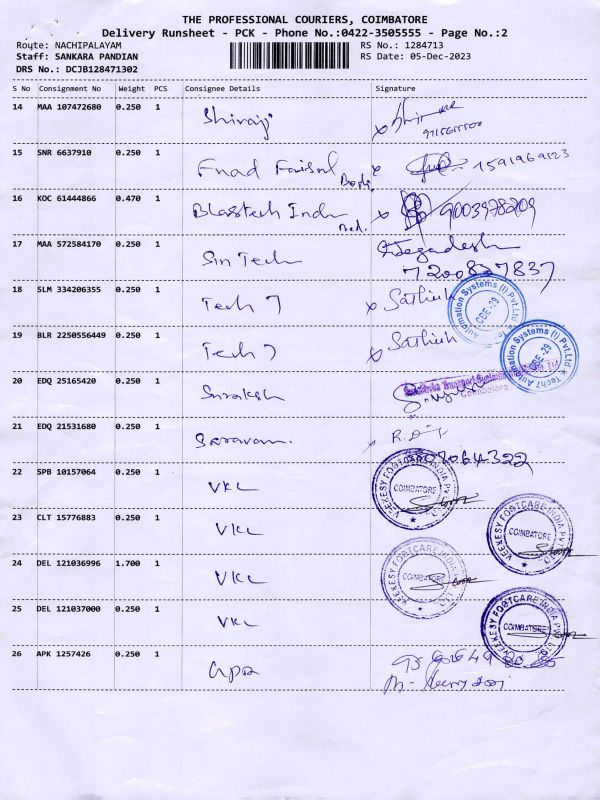 THE PROFESSIONAL COURIERS, COIMBATORE
Delivery Runsheet - PCK - Phone No.:0422-3505555 - Page No.:2
Route: NACHIPALAYAM RS No.: 1284713
Staff: SANKARA PANDIAN RS Date: 05-Dec-2023
DRS No.: DCJB128471302
S No Consignment No Weight PCS Consignee Details Signature
14 MAA 107472680 0.250 1 Shiraj
15 SNR 6637910 0.250 1 Fuad Faisal 1591969123
16 KOC 61444866 0.470 1 Blastech Indu 9003978209
17 MAA 572584170 0.250 1 Sin Tech Jegadesh
7200827837
18 SLM 334206355 0.250 1 Tech 7 Sathish
19 BLR 2250556449 0.250 1 Tech 7 Sathish
Tech7 Automation Systems (I) Pvt.Ltd CBE-29
Tech7 Automation Systems (I) Pvt.Ltd CBE-29
20 EDQ 25165420 0.250 1
Coimbatore
21 EDQ 21531680 0.250 1 Saravan.
22 SPB 10157064 0.250 1 VKC
VEEKESY FOOTCARE INDIA PVT COIMBATORE
23 CLT 15776883 0.250 1 VKC
VEEKESY FOOTCARE INDIA PVT COIMBATORE
24 DEL 121036996 1.700 1 VKC
VEEKESY FOOTCARE INDIA COIMBATORE
25 DEL 121037000 0.250 1 VKC
VEEKESY FOOTCARE INDIA PVT COIMBATORE
26 APK 1257426 0.250 1